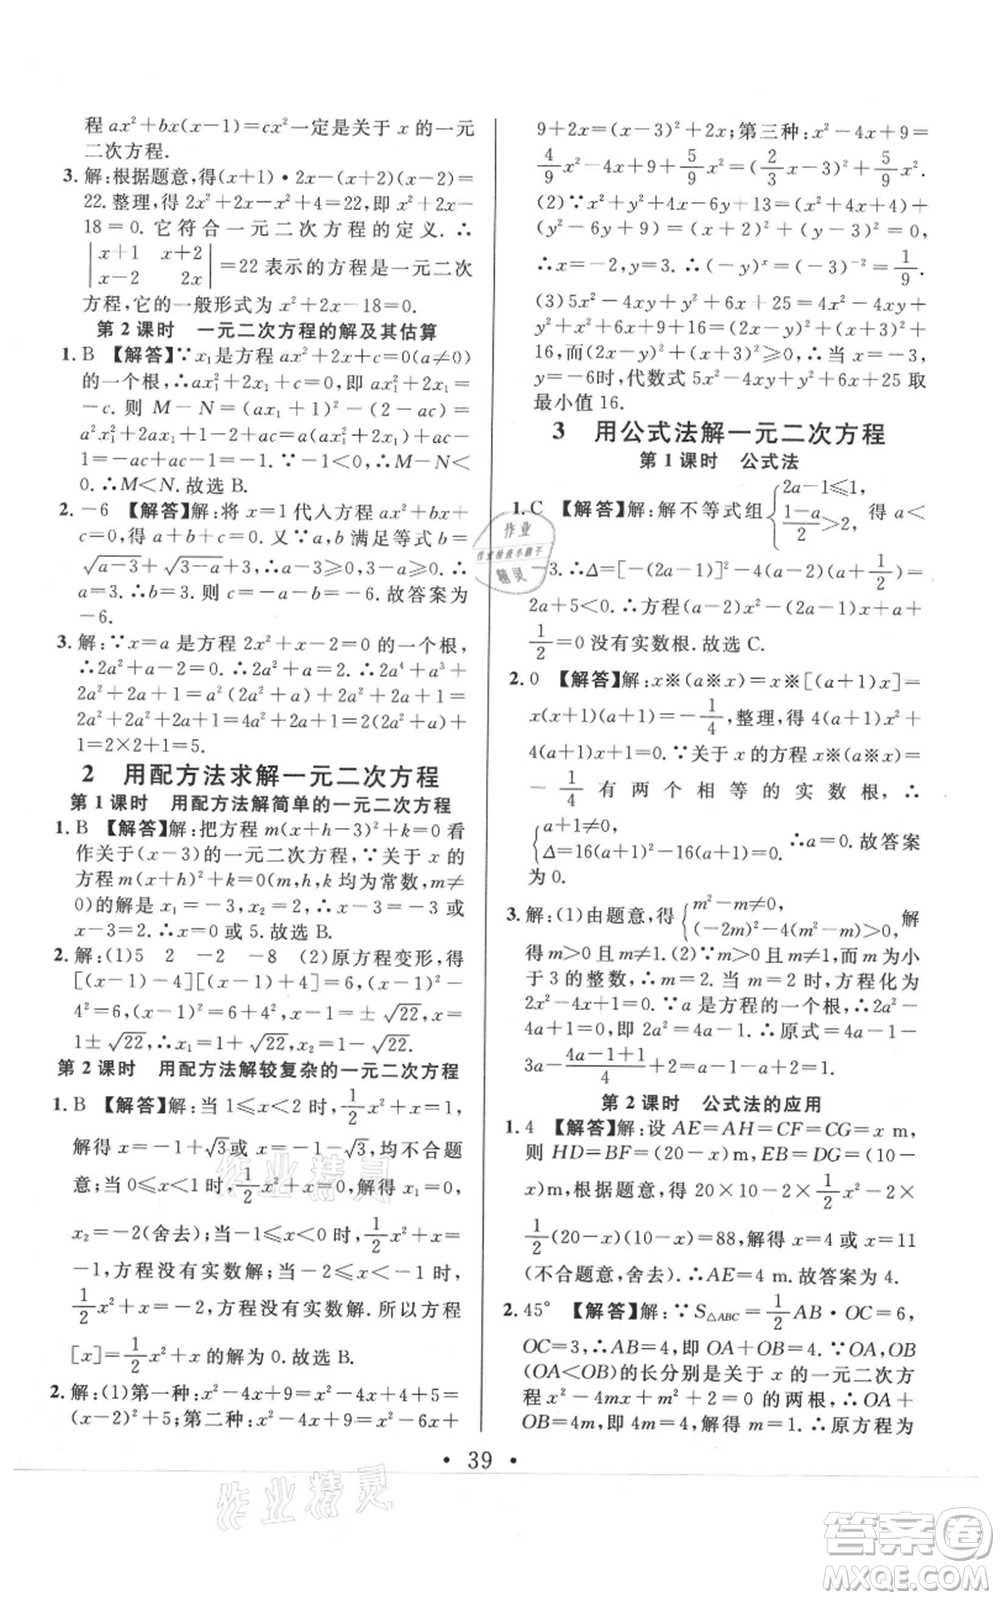 程 ax²+bx(x-1)=cx²一定是关于 x 的一元
二次方程.
3. 解:根据题意,得(x+1)·2x-(x+2)(x-2)=
22. 整理,得 2x²+2x-x²+4=22,即 x²+2x-
18=0. 它符合一元二次方程的定义. ∴
|x+1 x+2|
|x-2 2x| =22 表示的方程是一元二次
方程,它的一般形式为 x²+2x-18=0.
第 2 课时 一元二次方程的解及其估算
1. B 【解答】∵x₁是方程 ax²+2x+c=0(a≠0)
的一个根,∴ax₁²+2x₁+c=0,即 ax₁²+2x₁=
-c. 则 M-N=(ax₁+1)²-(2-ac)=
a²x₁²+2ax₁+1-2+ac=a(ax₁²+2x₁)+ac-1=
-ac+ac-1=-1. ∵-1<0,∴M-N<
0. ∴M<N. 故选 B.
2. -6 【解答】解:将 x=1 代入方程 ax²+bx+c=
0,得 a+b+c=0. ∵a,b 满足等式 b=
√(a-3)+√(3-a),∴a-3≥0,3-a≥0.∴
a=3. ∴b=0,则 c=-a-b=-6. 故答案为
-6.
3. 解:∵x=a 是方程 2x²+x-2=0 的一个根,
∴2a²+a-2=0. ∴2a²+a=2. ∴2a⁴+a³+
2a²+2a²+a+1=a²(2a²+a)+2a²+2a²+a+1=
2a²+2a²+2a²+a+1=4a²+2a+1=2(2a²+a)+
1=2×2+1=5.
2 用配方法求解一元二次方程
第 1 课时 用配方法解简单的一元二次方程
1. B 【解答】解:把方程 m(x+h-3)²+k=0 看
作关于(x-3)的一元二次方程,∵关于 x 的
方程 m(x+h)²+k=0(m,h,k 均为常数,m≠
0)的解是 x₁=-3,x₂=2,∴x-3=-3 或 x-
3=2,∴x=0 或 5. 故选 B.
2. 解:(1)5 2 -2 -8 (2)原方程变形,得
[(x-1)-4][(x-1)+4]=6,(x-1)²-
4²=6,(x-1)²=6+4²,x-1=±√22,x=
1±√22,∴x₁=1+√22,x₂=1-√22.
第 2 课时 用配方法解较复杂的一元二次方程
1. B 【解答】解:当 1≤x<2 时,1/2x²+x=1,
解得 x=-1+√3或 x=-1-√3,均不合题
意;当 0≤x<1 时,1/2x²+x=0,解得 x₁=0,
x₂=-2(舍去);当-1≤x<0 时,1/2x²+x=
-1,方程没有实数解;当-2≤x<-1 时,
1/2x²+x=-2,方程没有实数解. 所以方程
[x]=1/2x²+x 的解为 0. 故选 B.
2. 解:(1)第一种:x²-4x+9=x²-4x+4+5=
(x-2)²+5;第二种:x²-4x+9=x²-6x+
9+2x=(x-3)²+2x;第三种:x²-4x+9=
4/9x²-4x+9+5/9x²=(2/3x-3)²+5/9x².
(2)∵x²+y²-6x-2xy+... 
(y²-6y+9)=(x-y)²+(y-3)²=0,
∴x=-2,y=3.∴(-y)ˣ=(-3)⁻²=1/9.
16,而(2x-1)²+(x-y)²+16≥16,
y=-6时,代数式 5x²-4xy+y²+6y+25 取
最小值 16.
3 用公式法解一元二次方程
第 1 课时 公式法
1. C 【解答】解:解不等式组{2a-1≤1, (1-a)/2>2, 得 a<
-3. ∴Δ=[-(2a-1)]²-4(a-2)(a+1/2)=
2a+5<0,∴方程(a-2)x²-(2a-1)x+a+
1/2=0 没有实数根. 故选 C.
2. 0 【解答】解:x※(a※x)=x※[(a+1)x]=
x(x+1)(a+1)=-1/4,整理,得 4(a+1)x²+
4(a+1)x+1=0. ∵关于 x 的方程 x※(a※x)=
-1/4有两个相等的实数根,∴
{a+1≠0, Δ=16(a+1)²-16(a+1)=0. ∴a=0. 故答案
为 0.
3. 解:(1)由题意,得{m²-m≠0, (-2m)²-4m(m-1)>0, 解
得 m>0 且 m≠1. (2)∵m>0,m≠1,m 为小
于 3 的整数,∴m=2. 当 m=2 时,方程化为
2x²-4x+1=0. ∵a 是方程的一个根,∴2a²-
4a+1=0,即 2a²=4a-1. ∴原式=4a-1-
3a-(4a-1+1)/4+3=a-a+2=2.
第 2 课时 公式法的应用
1. 4 【解答】解:设 AE=AH=CF=CG=x m,
则 HD=BF=(20-x)m,EB=DG=(10-
x)m,根据题意,得 20×10-2×1/2x²-2×
1/2(20-x)(10-x)=88,解得 x=4 或 x=11
(不合题意,舍去). ∴AE=4 m. 故答案为 4.
2. 45° 【解答】解:∵S△ABC=1/2AB·OC=6,
OC=3,∴AB=4,即 OA+OB=4. ∵OA,OB
(OA<OB)的长分别是关于 x 的一元二次方
程 x²-4mx+m²+2=0 的两根,∴OA+
OB=4m,即 4m=4,解得 m=1. ∴原方程为
·39·
作业精灵
作业精灵
作业
作业检查小助手
精灵
答案卷
MXQE.COM